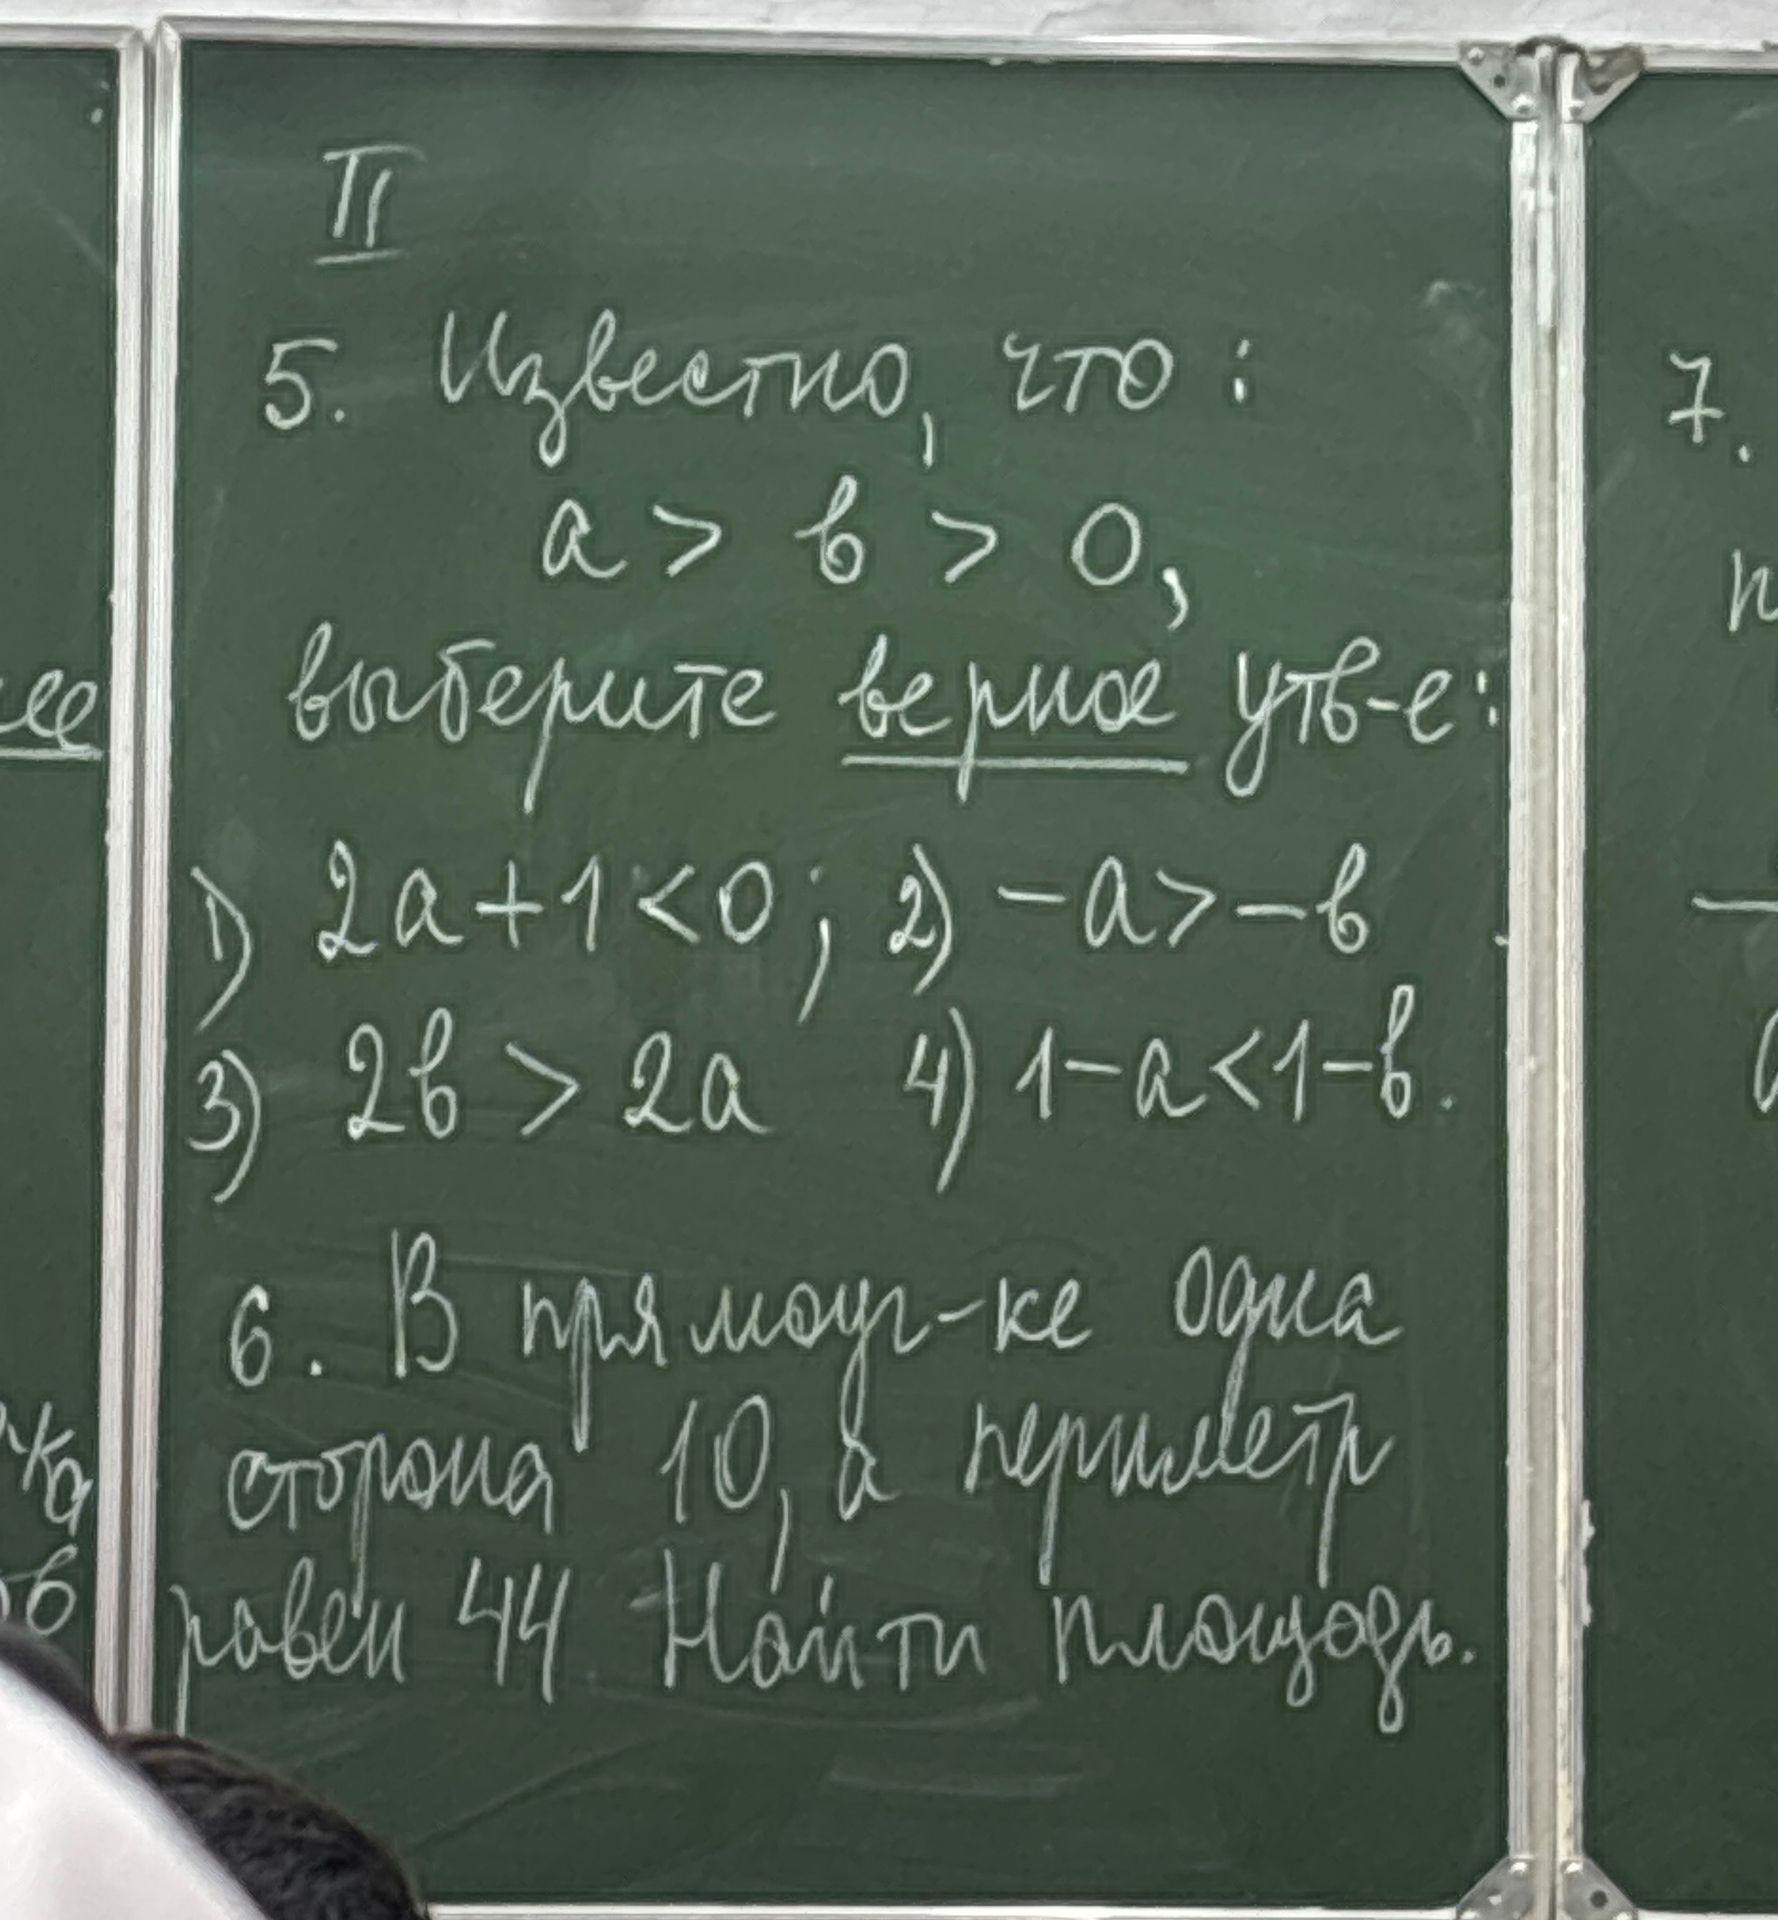 II
5. Известно, что:
a > b > 0,
выберите верное утв-е:
1) 2a+1<0; 2) -a>-b
3) 2b > 2a 4) 1-a<1-b.
6. В прямоуг-ке одна
сторона 10, а периметр
равен 44 Найти площадь.
7.